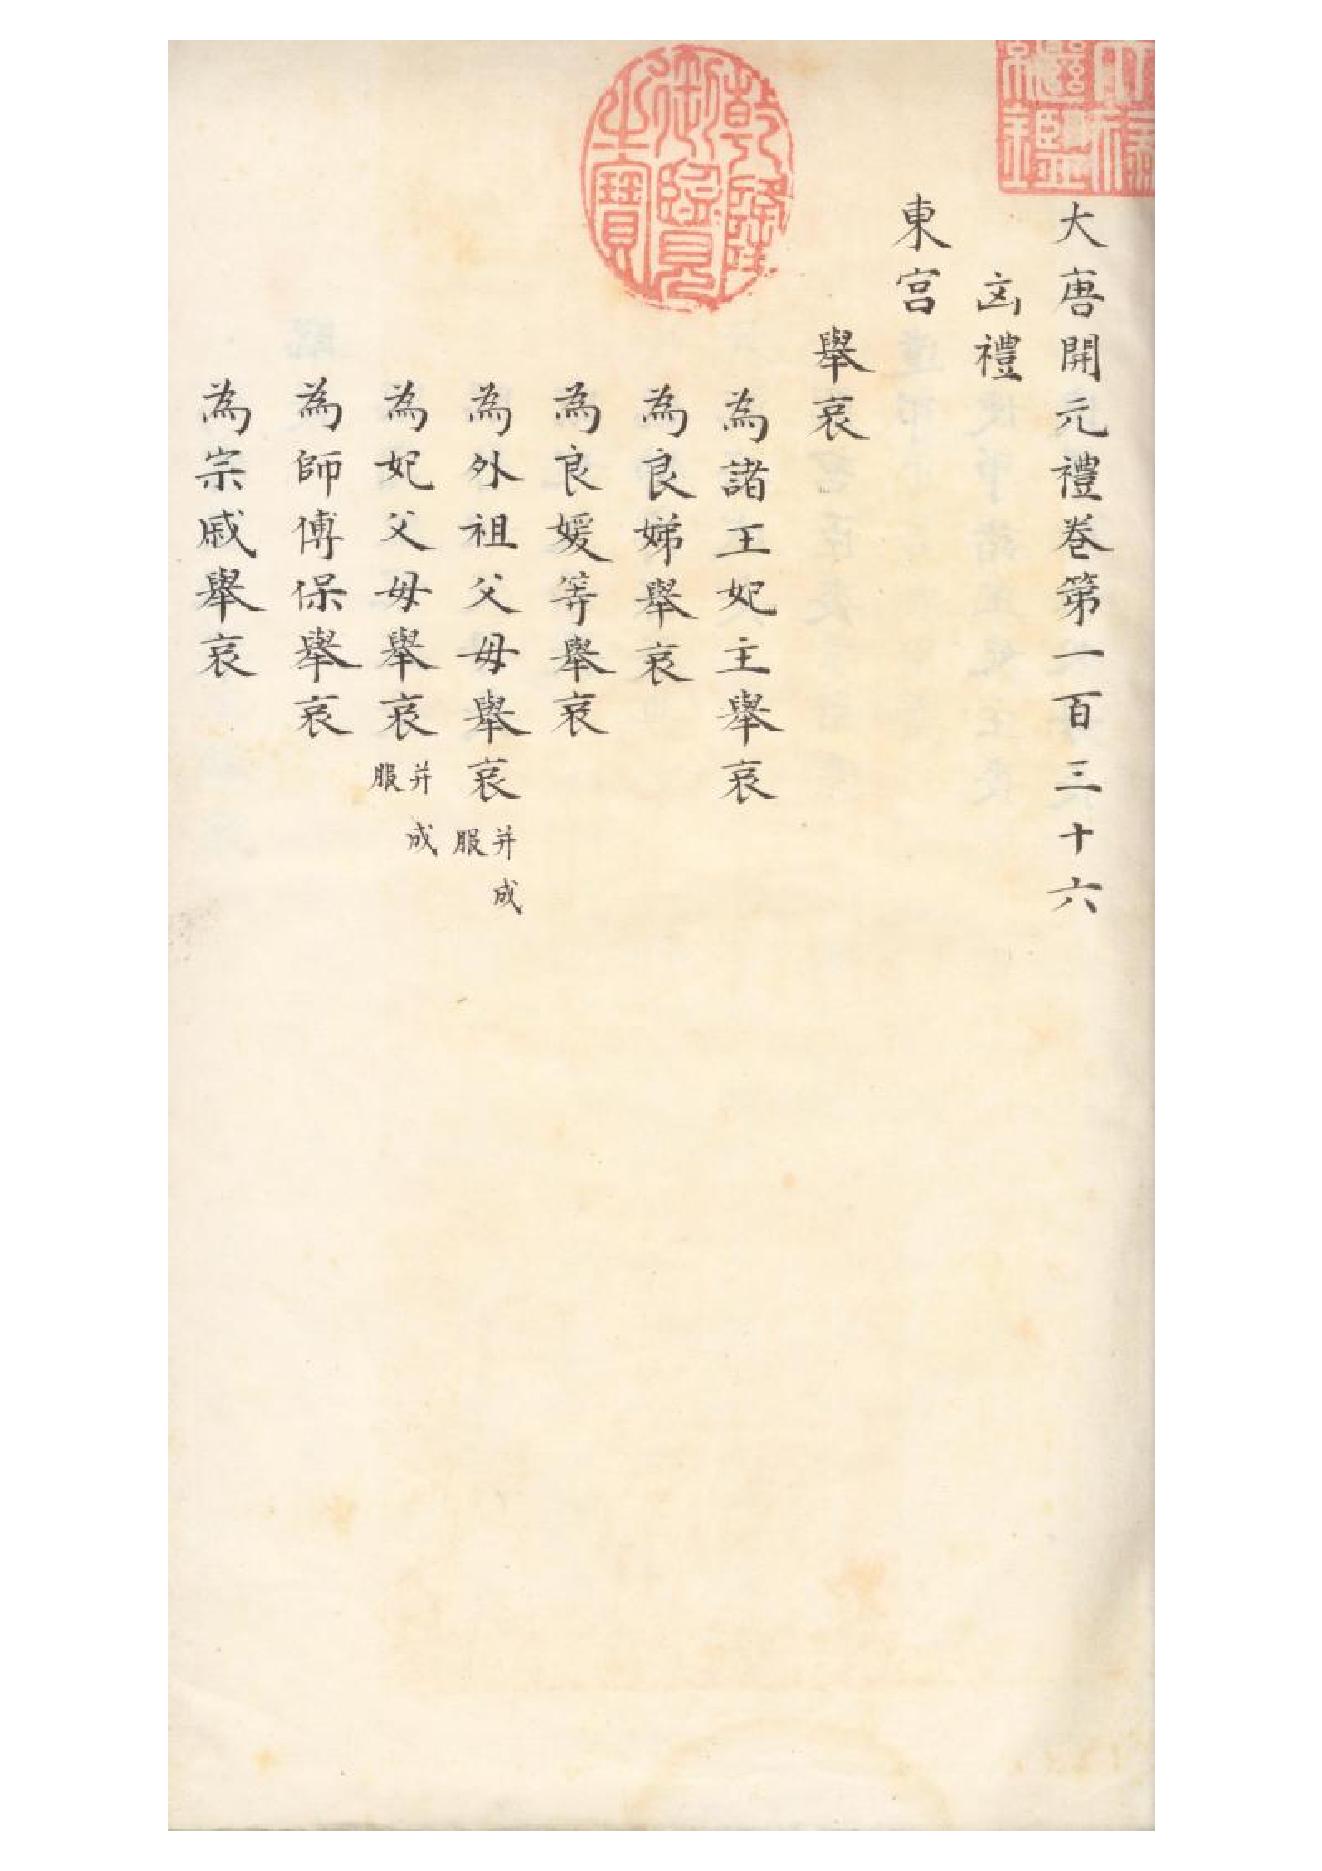 大唐開元禮卷第一百三十六
凶禮
東宮
舉哀
為諸王妃主舉哀
為良娣舉哀
為良媛等舉哀
為外祖父母舉哀并成服
為妃父母舉哀并成服
為師傅保舉哀
為宗戚舉哀
乾隆御覽之寶